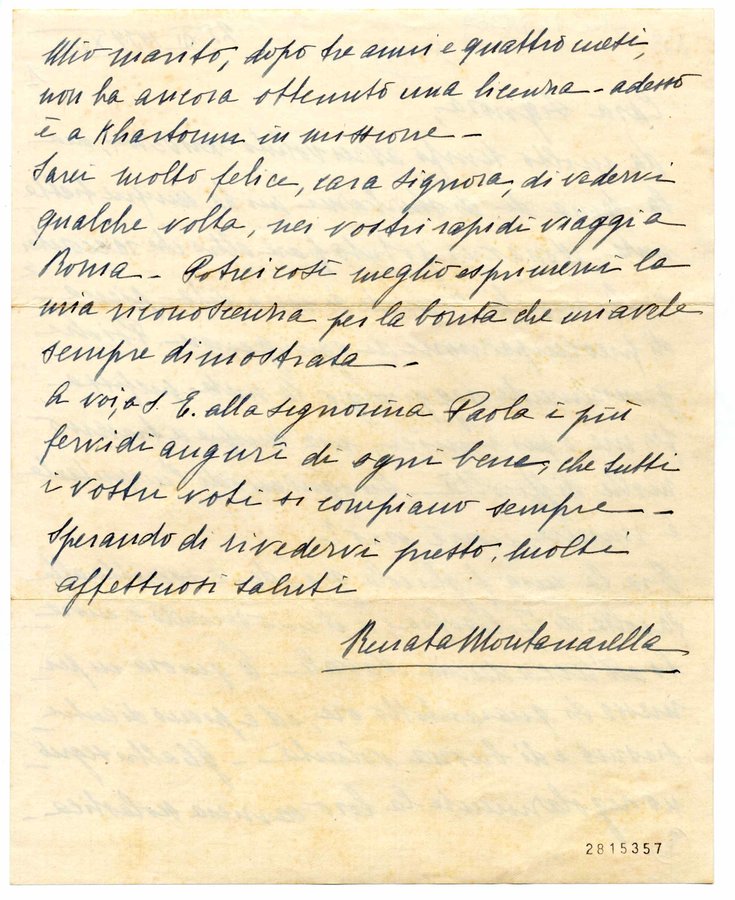 Mio marito, dopo tre anni e quattro mesi,
non ha ancora ottenuto una licenza - adesso
è a Khartoum in missione -
Sarei molto felice, cara Signora, di vedervi
qualche volta, nei vostri rapidi viaggi a
Roma - Potrei così meglio esprimervi la
mia riconoscenza per la bontà che mi avete
sempre dimostrata -
A voi, a S. E. alla signorina Paola i più
fervidi auguri di ogni bene, che tutti
i vostri voti si compiano sempre -
Sperando di rivedervi presto, molti
affettuosi saluti
Renata Montanarella
2815357